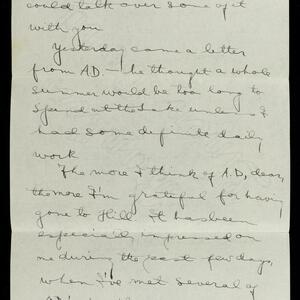 could talk over some of it
with you
Yesterday came a letter
from A.D. — he thought a whole
summer would be too long to
spend at the Lake unless I
had some definite daily
work
The more I think of A.D., dear,
the more I'm grateful for having
gone to Hill It has been
especially impressed on
me during the past few days,
when I've met several of